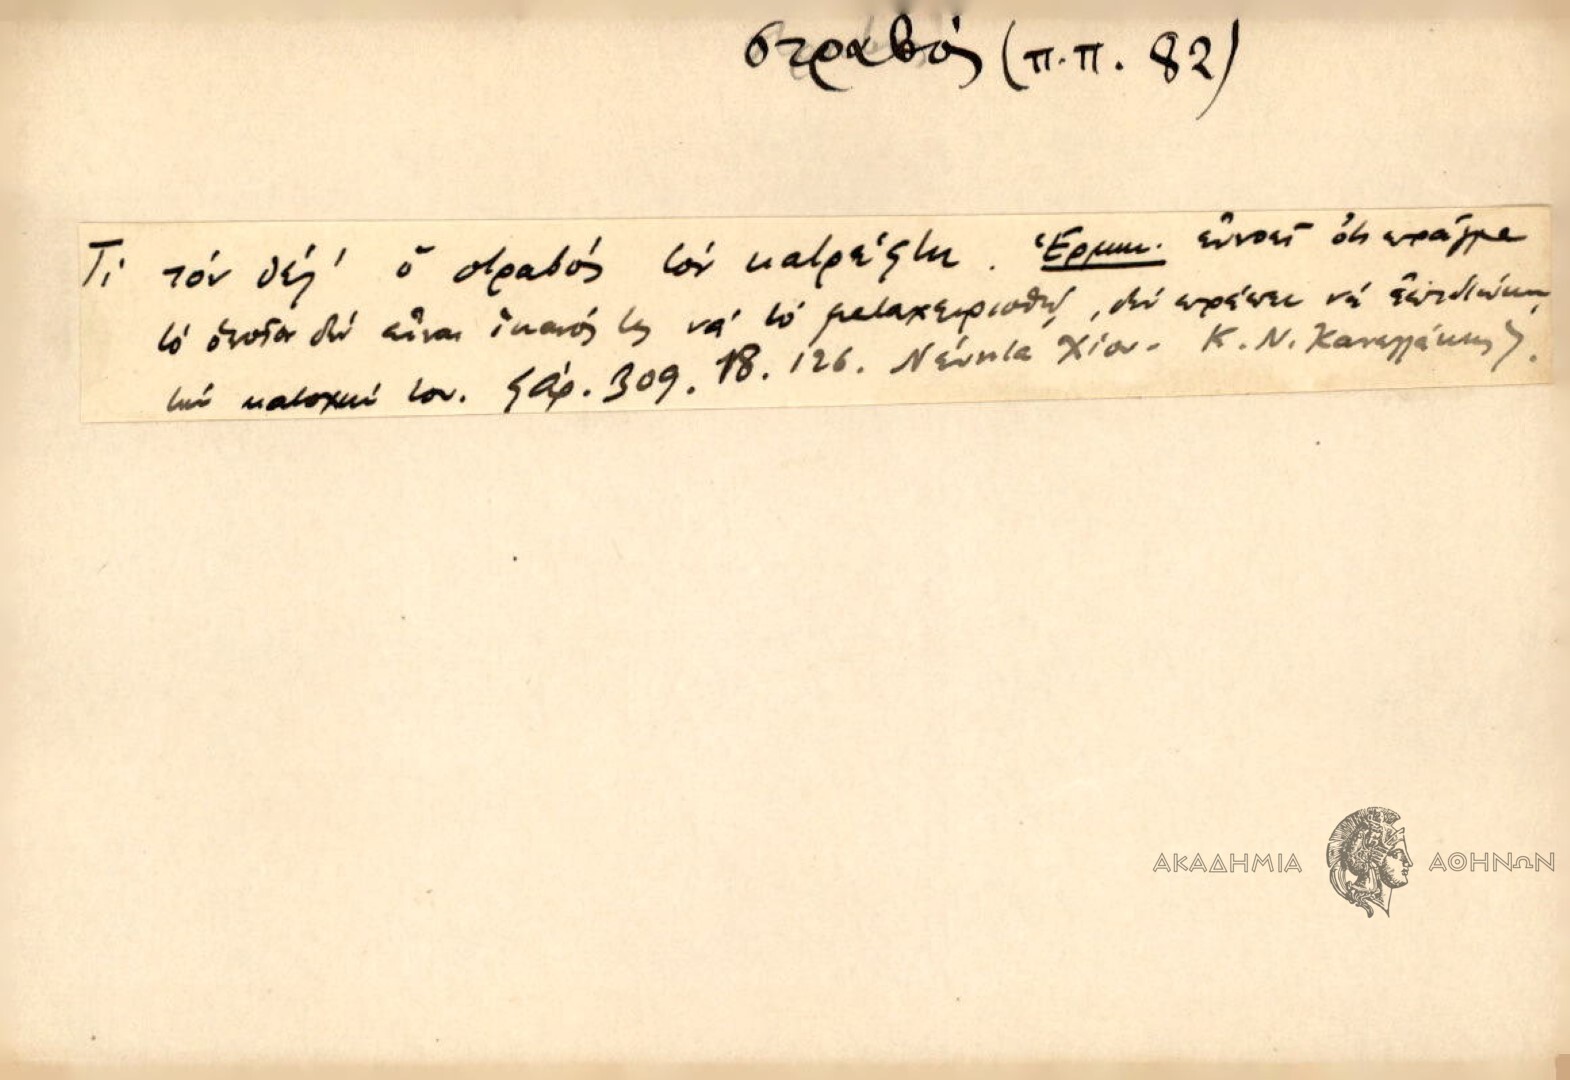 στραβός (π.π. 82)
Τί τὸν θέλ' ὁ στραβός τὸν καθρέφτη. Ἑρμην. ἐννοεῖ ὅτι πρᾶγμα
τό ὁποῖον δέν εἶναι ἱκανός τις νά τό μεταχειρισθῇ, δέν πρέπει νά ἐπιδιώκῃ
τήν κατοχήν του. 309. 18. 126. Νένητα Χίου - Κ. Ν. Κανελλάκης
ΑΚΑΔΗΜΙΑ ΑΘΗΝΩΝ